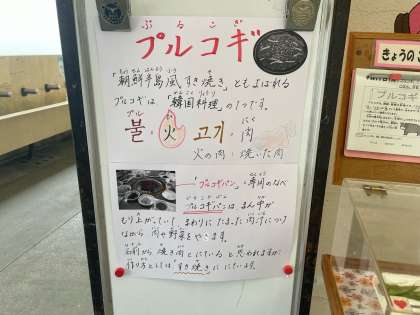 ぷるこぎ
プルコギ
「朝鮮半島風すき焼き」ともよばれる
プルコギは「韓国料理」の1つです。
プル
불・火 고기・肉
火の肉:焼いた肉
「プルコギパン」専用のなべ
プルコギパンは まん中が
もり上がっていて、まわりにたまった肉汁につけ
ながら 肉や野菜をやきます。
名前から 焼き肉ににている と思われますが
作り方としては「すき焼き」ににています。
きょうのこ
プルコギ